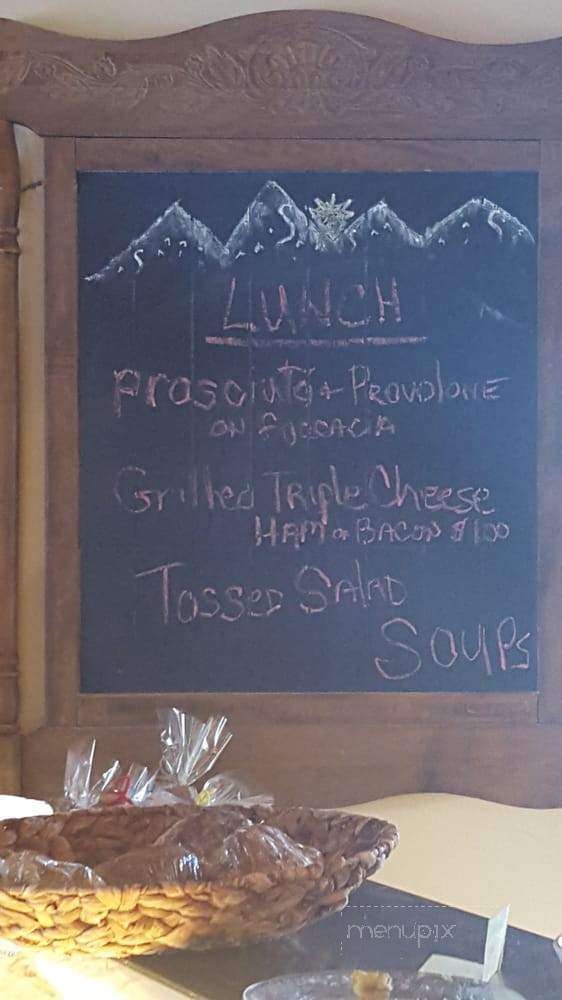 LUNCH
Prosciutto + Provolone
on Foccacia
Grilled Triple Cheese
Ham or Bacon $1.00
Tossed Salad
Soups
menupix